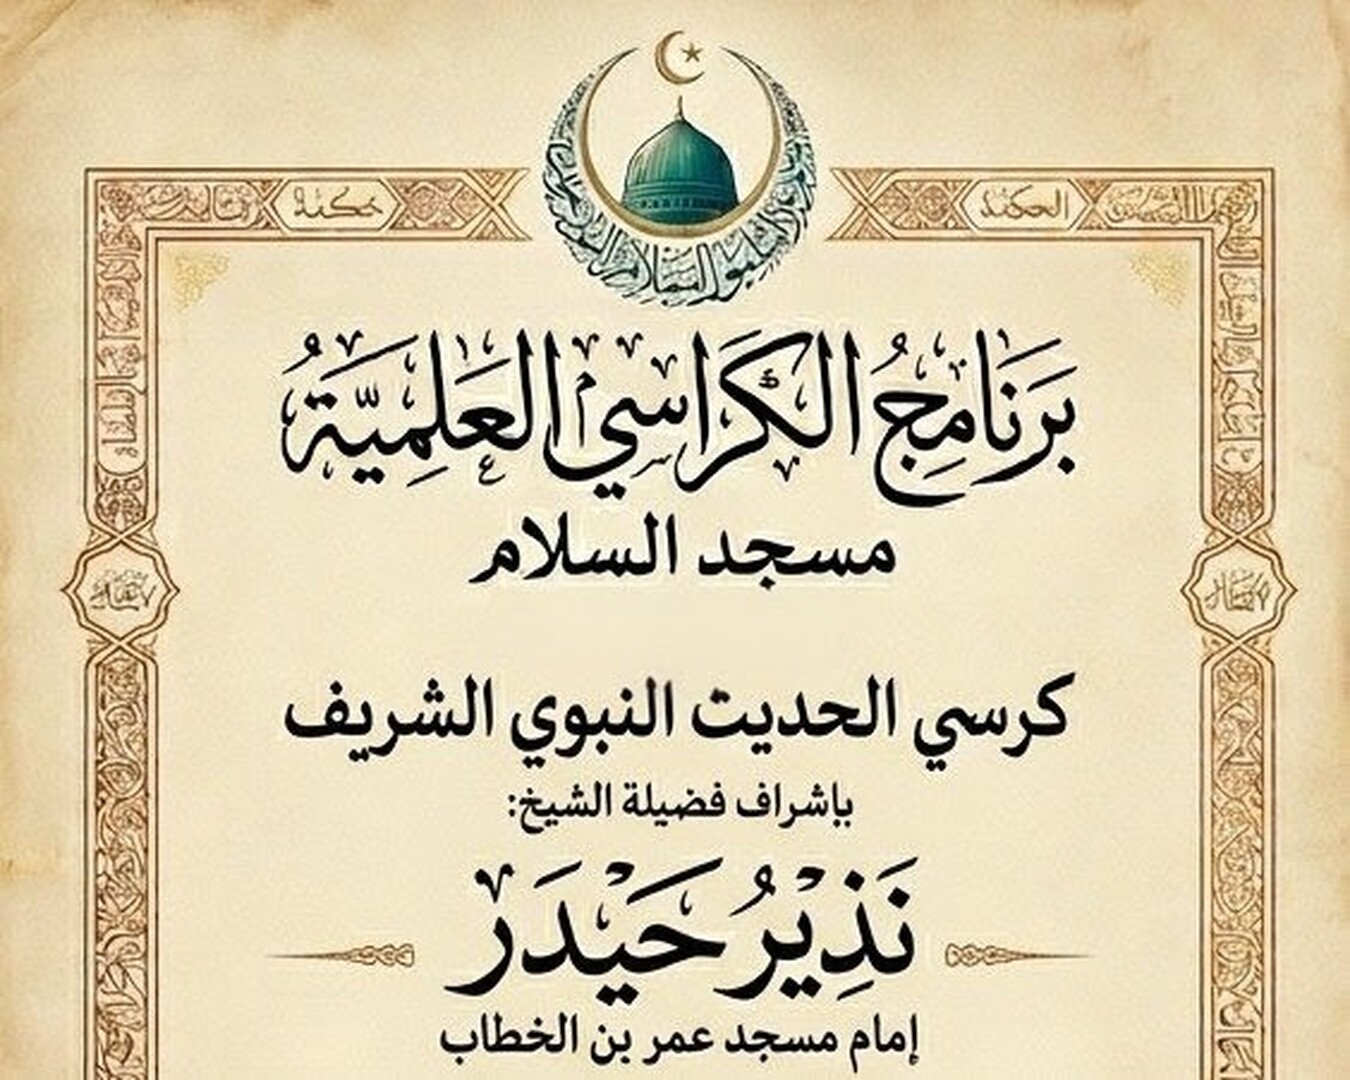 بَرنَامِجُ الكَرَاسيِ العَلِميَّةُ
مسجد السلام
كرسي الحديت النبوي الشريف
بإشراف فضيلة الشيخ:
نَذِيرُ حَيْدَر
إمام مسجد عمر بن الخطاب